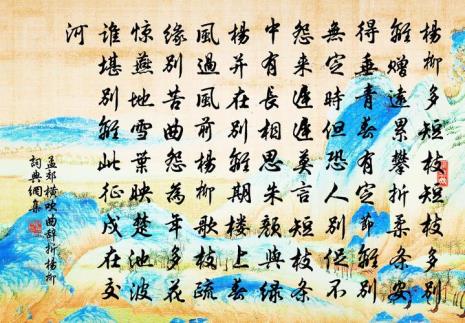 楊柳多短枝短枝多別
離贈遠累攀折柔條安
得垂青春有定節離別
無定時但恐人別促不
怨來遲遲莫言短枝條
中有長相思朱顏與綠
楊并在別離期樓上春
風過風前楊柳歌枝疏
緣別苦曲怨為年多花
驚燕地雪葉映楚池波
誰堪別離此征戍在交
河
孟郊橫吹曲辭折楊柳
詞典網集